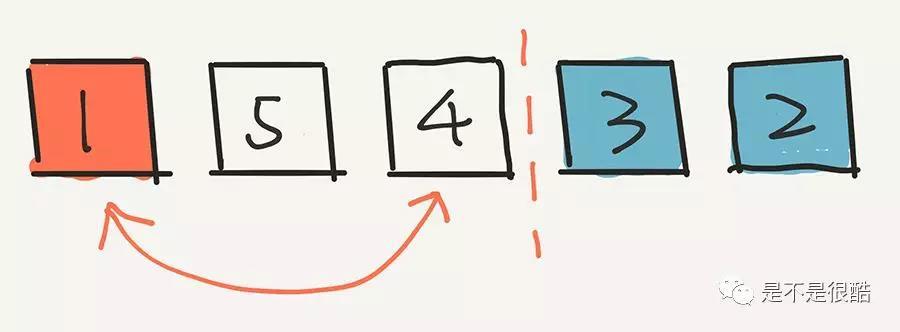 1 5 4 3 2
是不是很酷